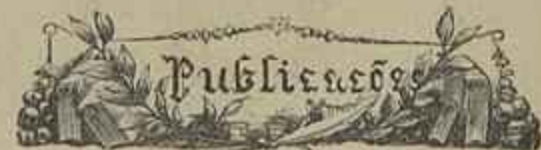 Publicações